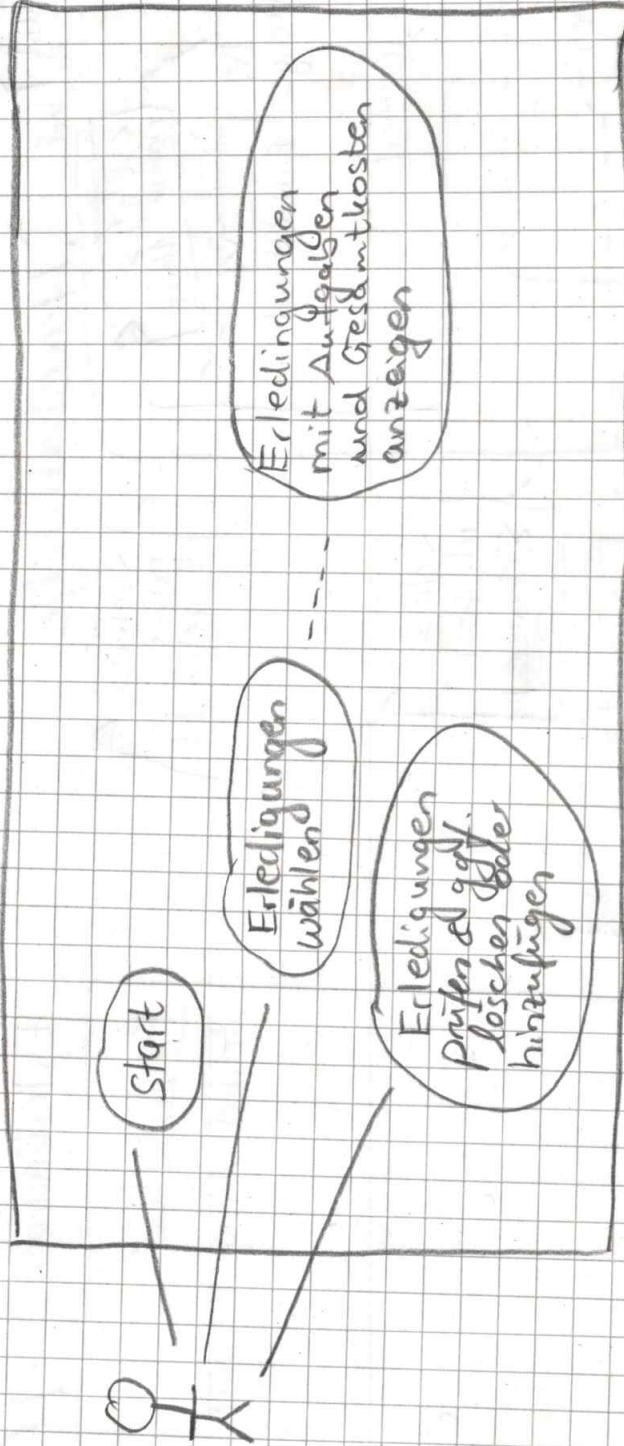 Start
Erledigungen
wählen
Erledigungen
prüfen & ggf.
löschen oder
hinzufügen
Erledingungen
mit Aufgaben
und Gesamtkosten
anzeigen